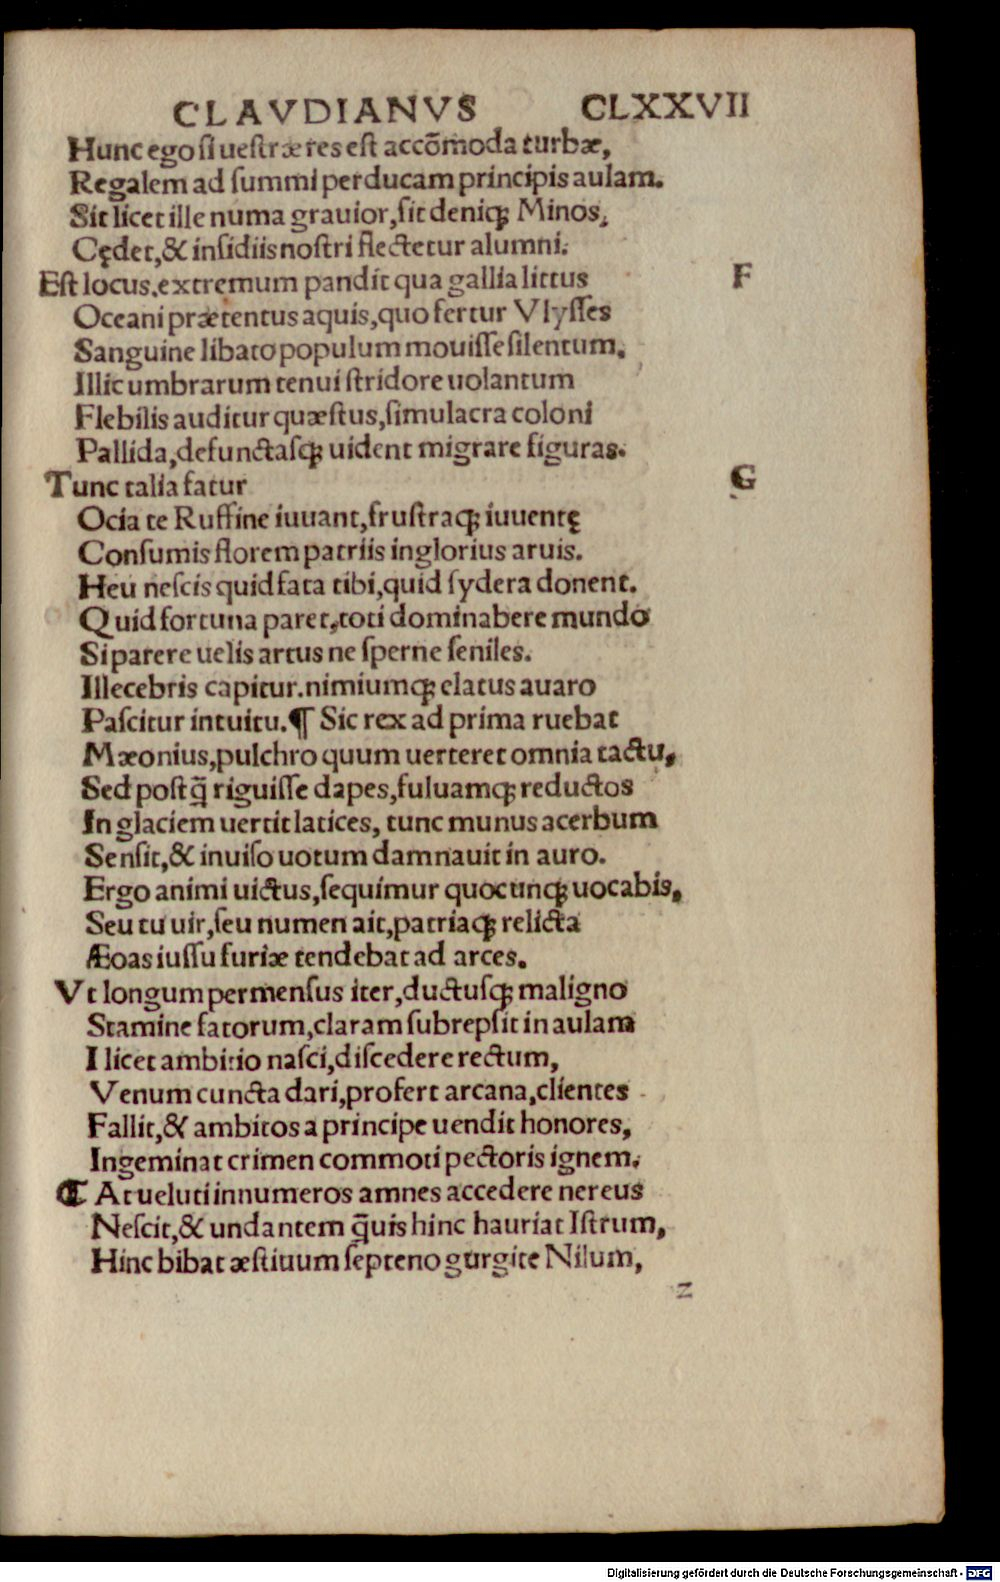 CLAVDIANVS CLXXVII
Hunc ego ſi ueſtræ res eſt accõmoda turbæ,
Regalem ad ſummi perducam principis aulam.
Sit licet ille numa grauior, ſit deniqꝫ Minos,
Cędet, & inſidiis noſtri flectetur alumni.
Eſt locus, extremum pandit qua gallia littus F
Oceani prætentus aquis, quo fertur Vlyſſes
Sanguine libato populum mouiſſe ſilentum.
Illic umbrarum tenui ſtridore uolantum
Flebilis auditur quæſtus, ſimulacra coloni
Pallida, defunctaſqꝫ uident migrare figuras.
Tunc talia fatur G
Ocia te Ruffine iuuant, fruſtraqꝫ iuuentę
Conſumis florem patriis inglorius aruis.
Heu neſcis quid fata tibi, quid ſydera donent.
Quid fortuna paret, toti dominabere mundo
Si parere uelis artus ne ſperne ſeniles.
Illecebris capitur. nimiumqꝫ elatus auaro
Paſcitur intuitu. ¶ Sic rex ad prima ruebat
Mæonius, pulchro quum uerteret omnia tactu,
Sed poſtq̃ riguiſſe dapes, fuluamqꝫ reductos
In glaciem uertit latices, tunc munus acerbum
Senſit, & inuiſo uotum damnauit in auro.
Ergo animi uictus, ſequimur quocunqꝫ uocabis,
Seu tu uir, ſeu numen ait, patriaqꝫ relicta
Æoas iuſſu furiæ tendebat ad arces.
Vt longum permenſus iter, ductuſqꝫ maligno
Stamine fatorum, claram ſubrepſit in aulam
I licet ambitio naſci, diſcedere rectum,
Venum cuncta dari, profert arcana, clientes
Fallit, & ambitos a principe uendit honores,
Ingeminat crimen commoti pectoris ignem.
¶ At ueluti innumeros amnes accedere nereus
Neſcit, & undantem q̃uis hinc hauriat Iſtrum,
Hinc bibat æſtiuum ſepteno gurgite Nilum,
z
Digitalisierung gefördert durch die Deutsche Forschungsgemeinschaft - DFG